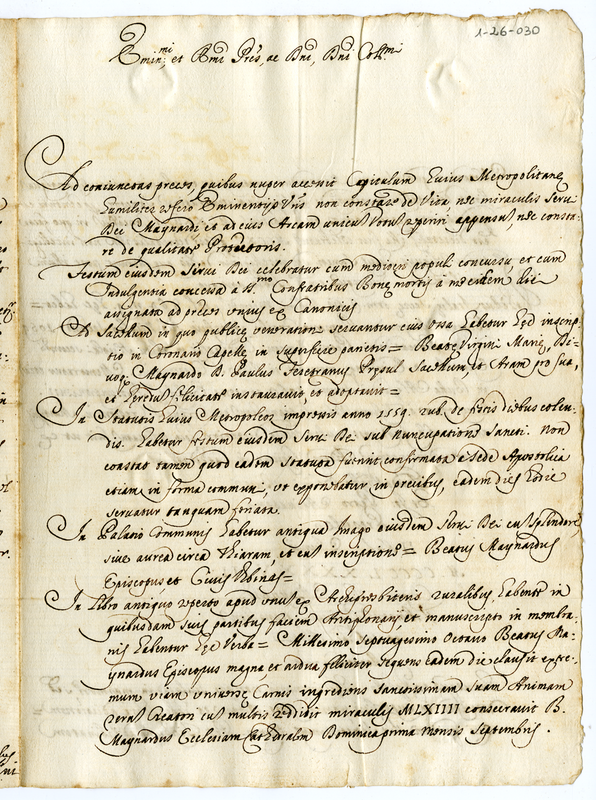 1-26-030
Emin.mi et Rmi Pres, ac Dni, Dni Coll.mi
Ad coniunctas preces, quibus nuper accessit Capitulum huius Metropolitanę
humiliter refero Eminentijs Vris non constare de Vita nec miraculis Serui
Dei Maynardi et ad eius Arcam unicum Votum reperiri appensum, nec consta-
re de qualitate
Festum eiusdem Serui Dei celebratur cum mediocri populi concursu, et cum
Indulgentia concessa à Confratribus Bonę mortis à
assignata ad preces unius ex Canonicis
Ad Sacellum in quo publicę venerationi seruantur eius ossa habetur hęc inscrip-
tio in Coronario Capellę, in superficie parietis = Beatę Virgini Marię, Di-
uoq. Maynardo D. Paulus Prępsul Sacellum, et Aram pro sua,
et heredum felicitate instaurauit, et adoptauit =
In Statutis huius Metropoleos impressis anno 1559. rub. de ferijs diebus colen-
dis. habetur festum eiusdem Serui Dei sub nuncupatione Sancti. Non
constat tamen quod eadem statuta fuerint confirmata à Sede Apostolica
etiam in forma communi, ut exponebatur in precibus, eadem dies hodie
seruatur tanquam feriata.
In Palatio Communis habetur antiqua Imago eiusdem Serui Dei cum splendore,
siue aurea circa Thiaram, et cum inscriptione = Beatus Maynardus
Episcopus, et Ciuis Vrbinas =
In Libro antiquo reperto apud unum ex Archipresbiteris ruralibus, habente in
quibusdam suis partibus faciem Antiphonarij et manuscripto in membra-
nis habentur hęc Verba = Millesimo Septuagesimo Octauo Beatus Ma-
ynardus Episcopus magna, et ardua feliciter sequens eadem die clausit extre-
mum viam vniuersę Carnis ingrediens Sanctissimam suam Animam
Creatori cum multis reddidit miraculis MLXIIII consecrauit B.
Maynardus Ecclesiam Cathedralem Dominica prima mensis Septembris.